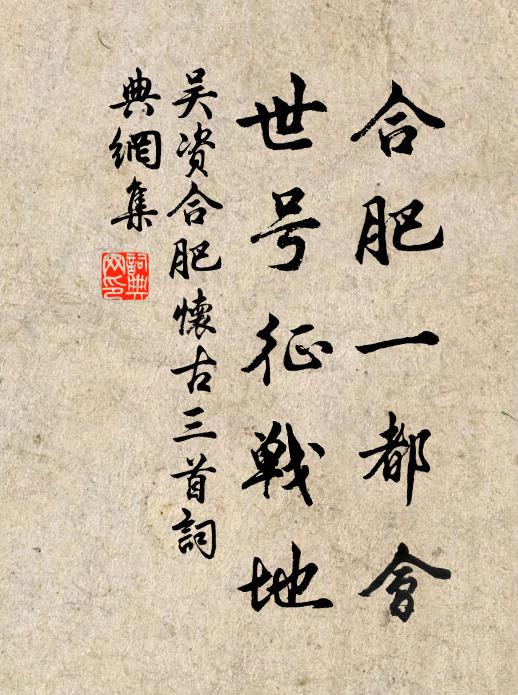 合肥一都會
世号征戰地
吴资合肥懷古三首詞
典網集
詞典
网印